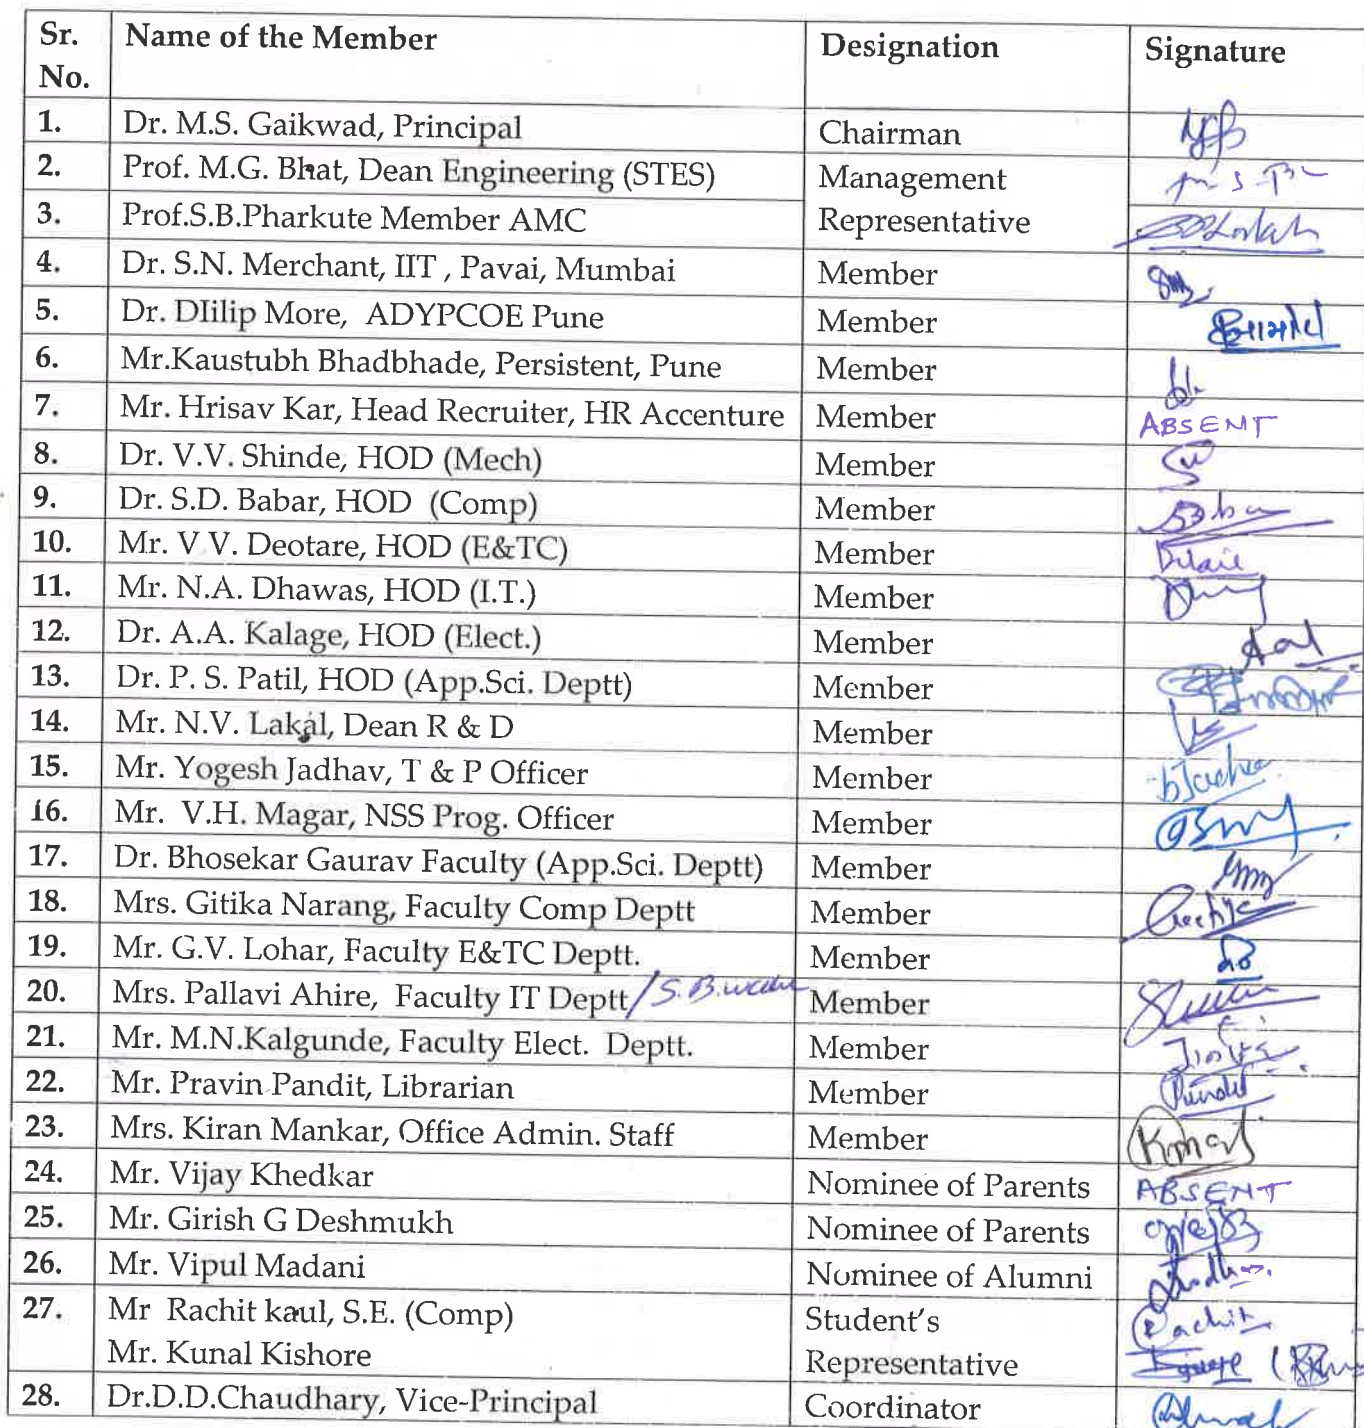 Sr. No. Name of the Member Designation Signature
1. Dr. M.S. Gaikwad, Principal Chairman
2. Prof. M.G. Bhat, Dean Engineering (STES) Management
3. Prof.S.B.Pharkute Member AMC Representative
4. Dr. S.N. Merchant, IIT , Pavai, Mumbai Member
5. Dr. DIilip More, ADYPCOE Pune Member
6. Mr.Kaustubh Bhadbhade, Persistent, Pune Member
7. Mr. Hrisav Kar, Head Recruiter, HR Accenture Member ABSENT
8. Dr. V.V. Shinde, HOD (Mech) Member
9. Dr. S.D. Babar, HOD (Comp) Member
10. Mr. V V. Deotare, HOD (E&TC) Member
11. Mr. N.A. Dhawas, HOD (I.T.) Member
12. Dr. A.A. Kalage, HOD (Elect.) Member
13. Dr. P. S. Patil, HOD (App.Sci. Deptt) Member
14. Mr. N.V. Lakal, Dean R & D Member
15. Mr. Yogesh Jadhav, T & P Officer Member
16. Mr. V.H. Magar, NSS Prog. Officer Member
17. Dr. Bhosekar Gaurav Faculty (App.Sci. Deptt) Member
18. Mrs. Gitika Narang, Faculty Comp Deptt Member
19. Mr. G.V. Lohar, Faculty E&TC Deptt. Member
20. Mrs. Pallavi Ahire, Faculty IT Deptt / S.B. Member
21. Mr. M.N.Kalgunde, Faculty Elect. Deptt. Member
22. Mr. Pravin Pandit, Librarian Member
23. Mrs. Kiran Mankar, Office Admin. Staff Member
24. Mr. Vijay Khedkar Nominee of Parents ABSENT
25. Mr. Girish G Deshmukh Nominee of Parents
26. Mr. Vipul Madani Nominee of Alumni
27. Mr Rachit kaul, S.E. (Comp) Student's Rachit
Mr. Kunal Kishore Representative
28. Dr.D.D.Chaudhary, Vice-Principal Coordinator